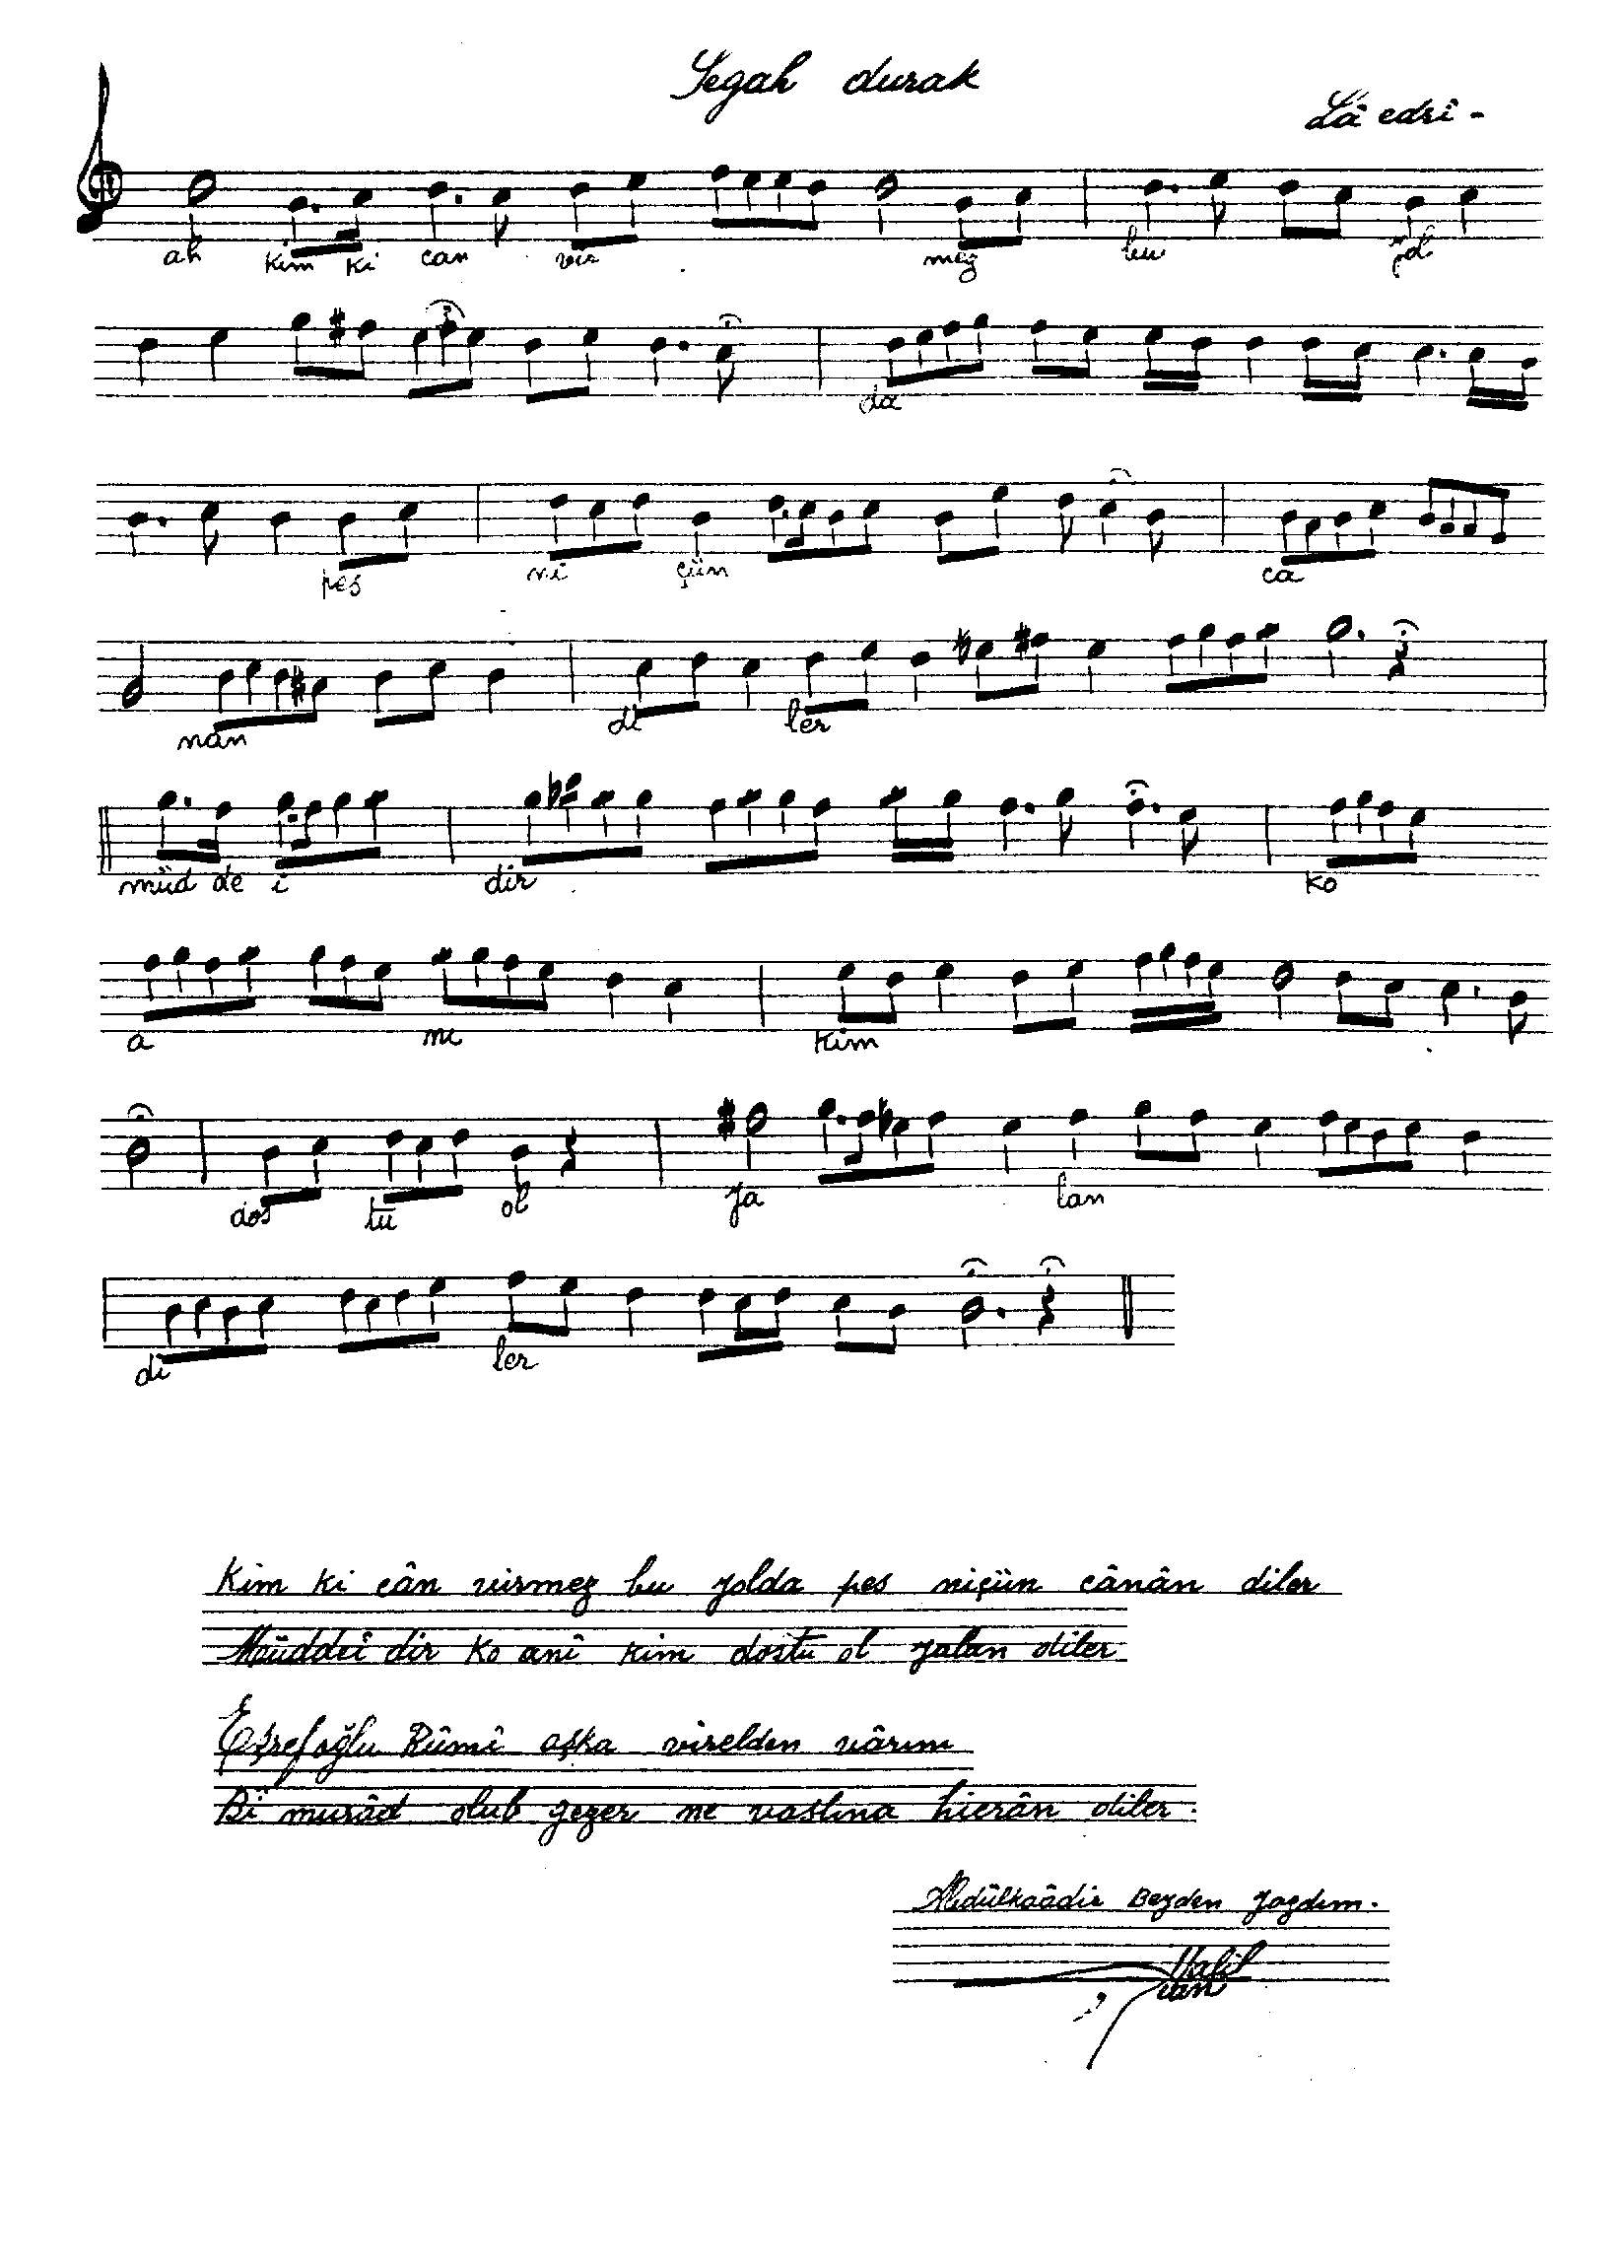 Segah durak
Lâ edrî -
ah kim ki can vir mez bu yol
da
pes ni çün ca
nan di ler
müd de i dir ko
a ni kim
dos tu ol ya lan
di ler
Kim ki cân virmez bu yolda pes niçün cânân diler
Müddeî dir ko anî kim dostu ol yalan diler
Eşrefoğlu Rûmî aşka virelden vârını
Bî murâd olub gezer ne vaslına hicrân diler.
Abdülkaâdir Beyden yazdım.
Halil
can